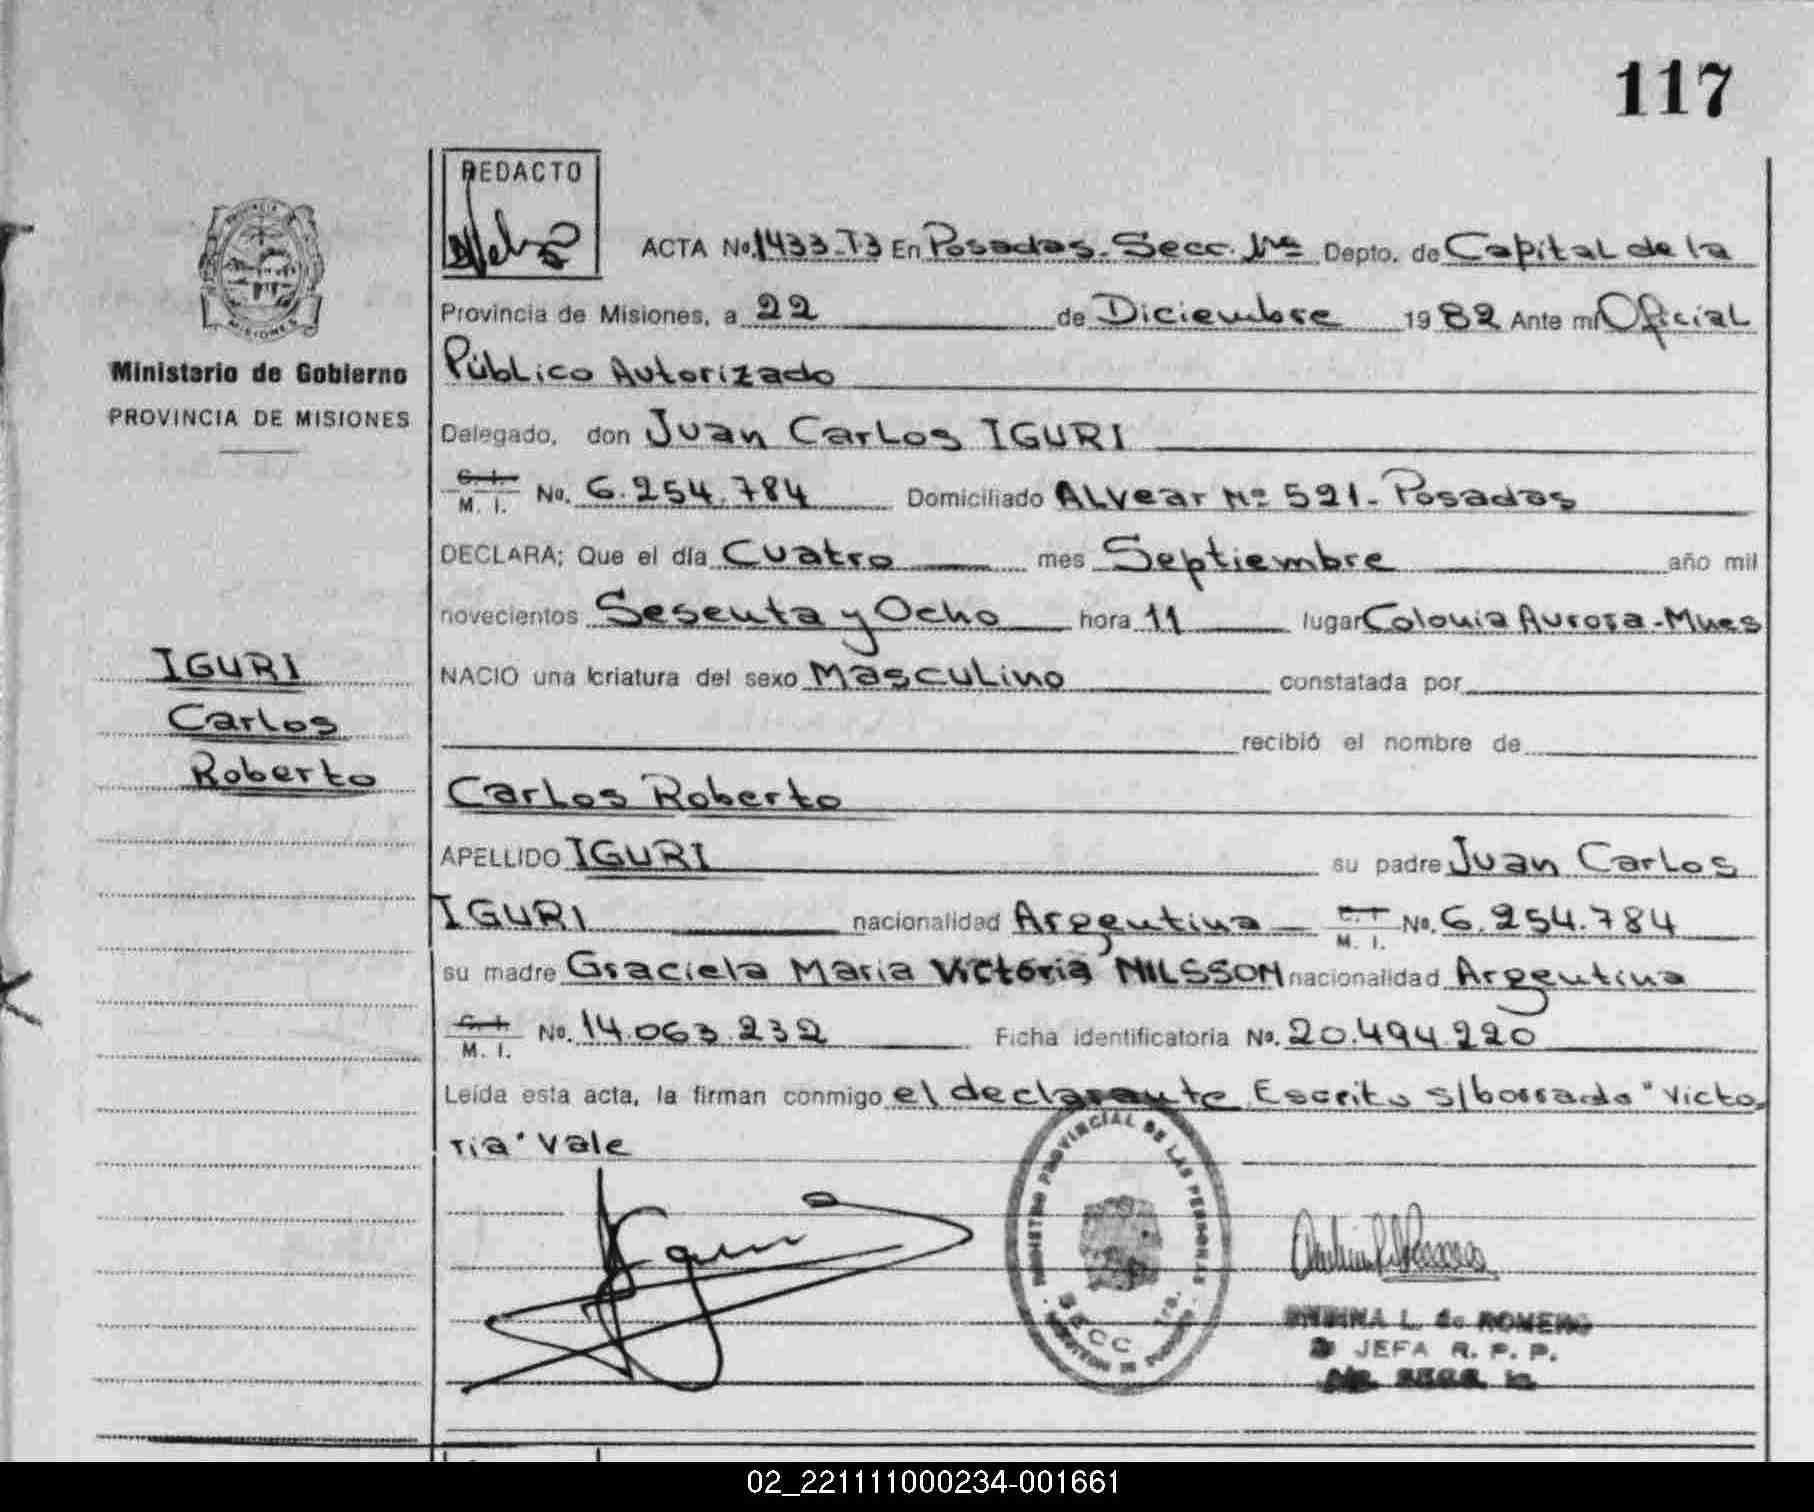 117
REDACTO
ACTA No. 1433-T3 En Posadas - Secc. 1ra Depto. de Capital de la
Provincia de Misiones, a 22 de Diciembre 1982 Ante mi Oficial
Público Autorizado
Delegado, don Juan Carlos IGURI
C. I. M. I. No. 6.254.784 Domiciliado Alvear Nº 521 - Posadas
DECLARA; Que el día Cuatro mes Septiembre año mil
novecientos Sesenta y Ocho hora 11 lugar Colonia Aurora - Mnes
NACIO una criatura del sexo Masculino constatada por
recibió el nombre de
Carlos Roberto
APELLIDO IGURI su padre Juan Carlos
IGURI nacionalidad Argentina C. I. M. I. No. 6.254.784
su madre Graciela Maria Victoria NILSSON nacionalidad Argentina
C. I. M. I. No. 14.063.232 Ficha identificatoria No. 20.494.220
Leída esta acta, la firman conmigo el declarante Escrito s/borrado "Victo
ria" Vale
PROVINCIA
MISIONES
Ministerio de Gobierno
PROVINCIA DE MISIONES
IGURI
Carlos
Roberto
REGISTRO PROVINCIAL DE LAS PERSONAS
SECC 1ra.
L. de ROMERO
JEFA R. P. P.
02_221111000234-001661